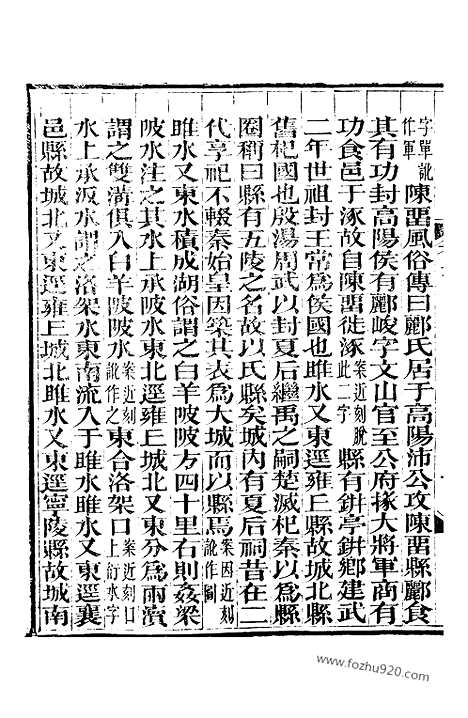 字單訛作軍陳畱風俗傳曰酈氏居于高陽沛公攻陳畱縣酈食
其有功封高陽侯有酈峻字文山官至公府掾大將軍商有
功食邑于涿故自陳畱徙涿案近刻脫此二字縣有鉼亭鉼鄉建武
二年世祖封王常爲侯國也睢水又東逕雍丘縣故城北縣
舊杞國也殷湯周武以封夏后繼禹之嗣楚滅杞秦以爲縣
圈稱曰縣有五陵之名故以氏縣矣城內有夏后祠昔在二
代享祀不輟秦始皇因築其表爲大城而以縣焉案因近刻訛作圖
睢水又東水積成湖俗謂之白羊陂陂方四十里右則姦梁
陂水注之其水上承陂水東北逕雍丘城北又東分爲兩瀆
謂之雙溝俱入白羊陂陂水案近刻訛作之東合洛架口案近刻口上衍水字
水上承汳水謂之洛架水東南流入于睢水睢水又東逕襄
邑縣故城北又東逕雍丘城北睢水又東逕寧陵縣故城南
www.fozhu920.com